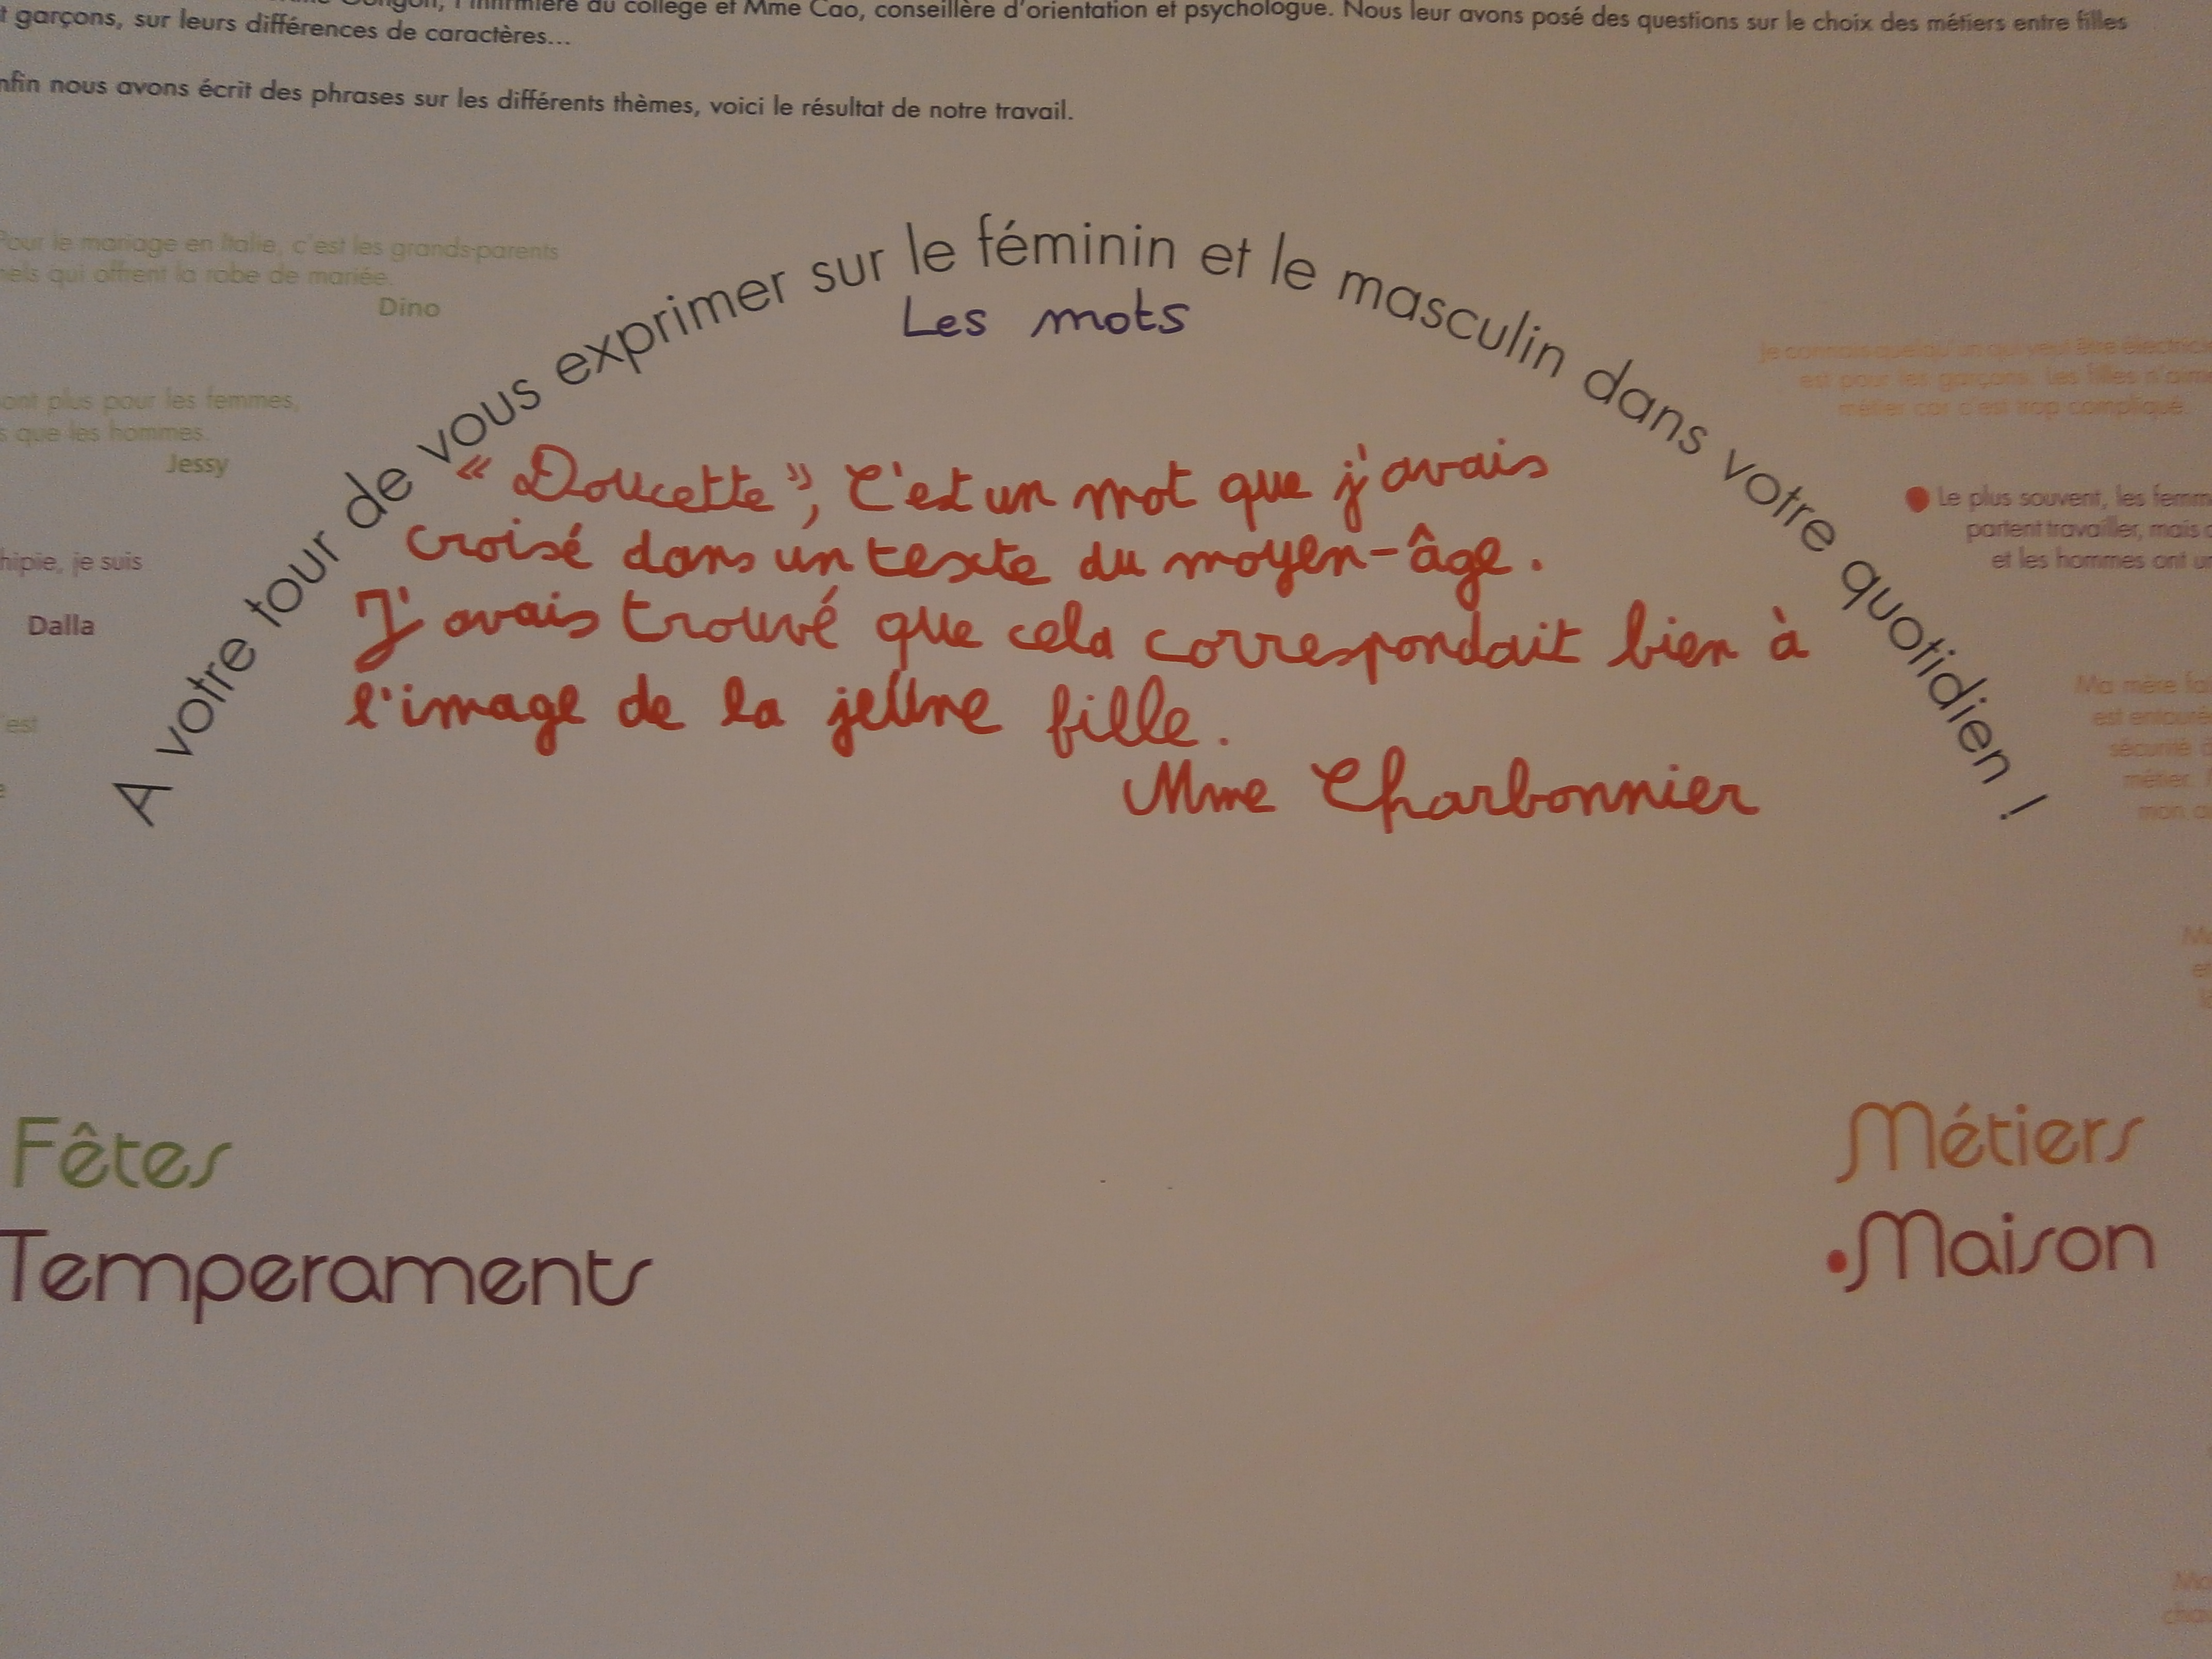 l'infirmière du collège et Mme Cao, conseillère d'orientation et psychologue. Nous leur avons posé des questions sur le choix des métiers entre filles
t garçons, sur leurs différences de caractères...
nfin nous avons écrit des phrases sur les différents thèmes, voici le résultat de notre travail.
A votre tour de vous exprimer sur le féminin et le masculin dans votre quotidien !
Les mots
« Doucette », C'est un mot que j'avais
croisé dans un texte du moyen-âge.
J'avais trouvé que cela correspondait bien à
l'image de la jeune fille.
Mme Charbonnier
Pour le mariage en Italie, c'est les grands-parents
nels qui offrent la robe de mariée.
Dino
ont plus pour les femmes,
s que les hommes.
Jessy
hipie, je suis
Dalla
'est
Je connais quelqu'un qui veut être électrici
est pour les garçons. Les filles n'aime
métier car c'est trop compliqué.
Le plus souvent, les femm
partent travailler, mais
et les hommes ont un
Ma mère fai
est entouré
sécurité d
métier.
mon
Fêtes
Temperaments
Métiers
Maison